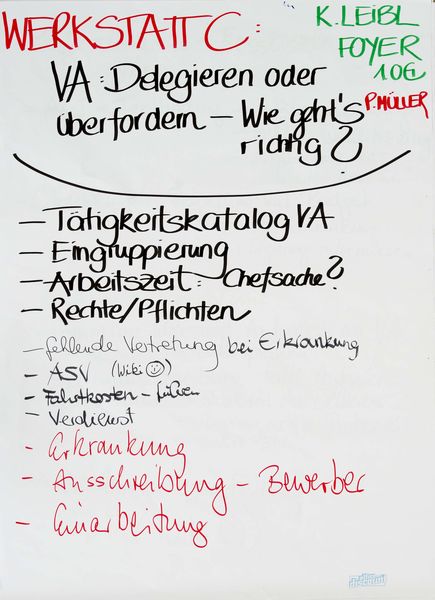 WERKSTATT C:
K. LEIBL
FOYER
1.OG
P. MÜLLER
VA: Delegieren oder
überfordern – Wie geht's
richtig?
– Tätigkeitskatalog VA
– Eingruppierung
– Arbeitszeit: Chefsache?
– Rechte/Pflichten
– fehlende Vertretung bei Erkrankung
– ASV (Wiki ☺)
– Fahrtkosten –
– Verdienst
– Erkrankung
– Ausschreibung – Bewerber
– Einarbeitung
discount